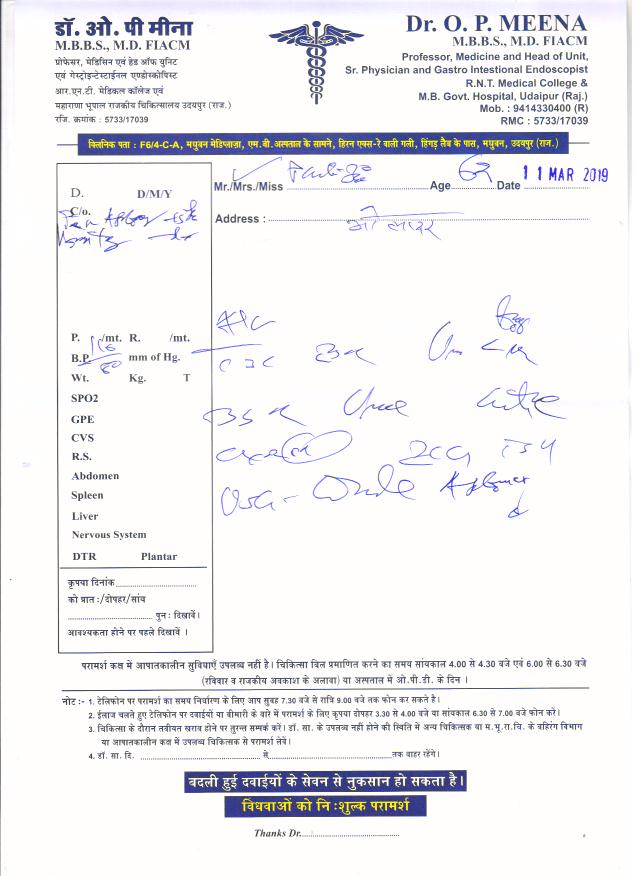 डॉ. ओ. पी मीना
M.B.B.S., M.D. FIACM
प्रोफेसर, मेडिसिन एवं हेड ऑफ यूनिट
एवं गेस्ट्रोइन्टेस्टाईनल एण्डोस्कोपिस्ट
आर.एन.टी. मेडिकल कॉलेज एवं
महाराणा भूपाल राजकीय चिकित्सालय उदयपुर (राज.)
रजि. क्रमांक : 5733/17039
Dr. O. P. MEENA
M.B.B.S., M.D. FIACM
Professor, Medicine and Head of Unit,
Sr. Physician and Gastro Intestional Endoscopist
R.N.T. Medical College &
M.B. Govt. Hospital, Udaipur (Raj.)
Mob. : 9414330400 (R)
RMC : 5733/17039
क्लिनिक पता : F6/4-C-A, मधुबन मेडिप्लाज़ा, एम.बी.अस्पताल के सामने, हिरन एक्स-रे वाली गली, हिंगड़ लैब के पास, मधुबन, उदयपुर (राज.)
Mr./Mrs./Miss Age 62 Date 11 MAR 2019
Address :
D. D/M/Y
C/o.
P. /mt. R. /mt.
B.P. mm of Hg.
Wt. Kg. T
SPO2
GPE
CVS
R.S.
Abdomen
Spleen
Liver
Nervous System
DTR Plantar
CBC
ECG
USG - Whole Abdomen
कृपया दिनांक
को प्रातः/दोपहर/सांय
पुनः दिखावें।
आवश्यकता होने पर पहले दिखावें ।
परामर्श कक्ष में आपातकालीन सुविधाएँ उपलब्ध नहीं है। चिकित्सा बिल प्रमाणित करने का समय सांयकाल 4.00 से 4.30 बजे एवं 6.00 से 6.30 बजे
(रविवार व राजकीय अवकाश के अलावा) या अस्पताल में ओ.पी.डी. के दिन ।
नोट :- 1. टेलिफोन पर परामर्श का समय निर्धारण के लिए आप सुबह 7.30 बजे से रात्रि 9.00 बजे तक फोन कर सकते है।
2. ईलाज चलते हुए टेलिफोन पर दवाईयों या बीमारी के बारे में परामर्श के लिए कृपया दोपहर 3.30 से 4.00 बजे या सांयकाल 6.30 से 7.00 बजे फोन करें।
3. चिकित्सा के दौरान तबीयत खराब होने पर तुरन्त सम्पर्क करें। डॉ. सा. के उपलब्ध नहीं होने की स्थिति में अन्य चिकित्सक या म.भू.रा.चि. के बहिरंग विभाग
या आपातकालीन कक्ष में उपलब्ध चिकित्सक से परामर्श लेवें।
4. डॉ. सा. दि. से तक बाहर रहेंगे।
बदली हुई दवाईयों के सेवन से नुकसान हो सकता है।
विधवाओं को निःशुल्क परामर्श
Thanks Dr.